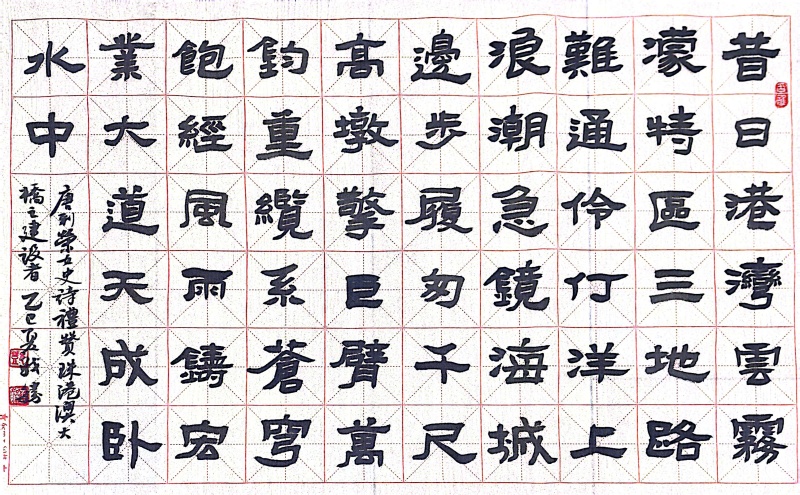 昔日港灣雲霧
濛特區三地路
難通伶仃洋上
浪潮急鏡海城
邊步履匆千尺
高墩擎巨臂萬
鈞重纜系蒼穹
飽經風雨鑄宏
業大道天成卧
水中
唐利榮女史詩禮贊珠港澳大
橋之建設者 乙巳夏